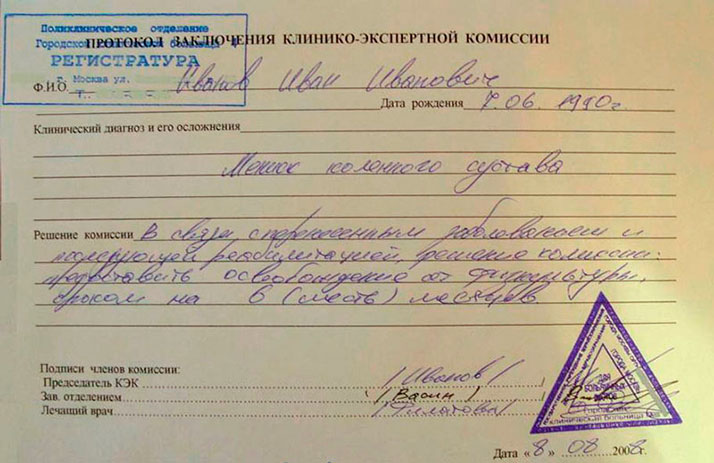 Поликлиническое отделение
Городской больницы
РЕГИСТРАТУРА
г. Москва ул.
ПРОТОКОЛ ЗАКЛЮЧЕНИЯ КЛИНИКО-ЭКСПЕРТНОЙ КОМИССИИ
Ф.И.О. Иванов Иван Иванович
Дата рождения 7.06 1990г.
Клинический диагноз и его осложнения
Мениск коленного сустава
Решение комиссии В связи с перенесенным заболеванием и
последующей реабилитацией, решение комиссии:
предоставить освобождение от физкультуры,
сроком на 6 (шесть) месяцев.
Подписи членов комиссии:
Председатель КЭК /Иванов/
Зав. отделением (Васин)
Лечащий врач /Филатова/
ДЛЯ
БОЛЬНИЧНЫХ
ЛИСТОВ
Дата «8» 08 2008г.